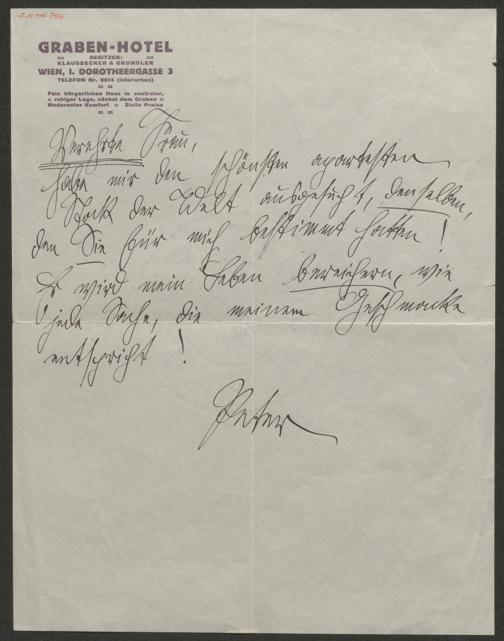 GRABEN-HOTEL
BESITZER:
KLAUSSECKER & GRUNDLER
WIEN, I. DOROTHEERGASSE 3
TELEFON Nr. 9614 (interurban)
Fein bürgerliches Haus in zentraler,
ruhiger Lage, nächst dem Graben
Modernster Komfort Zivile Preise
Verehrte Frau,
habe mir den schönsten apartesten
Stock der Welt ausgesucht, denselben,
den Sie für mich bestimmt hatten!
Er wird mein Leben bereichern, wie
jede Sache, die meinem Geschmacke
entspricht!
Peter